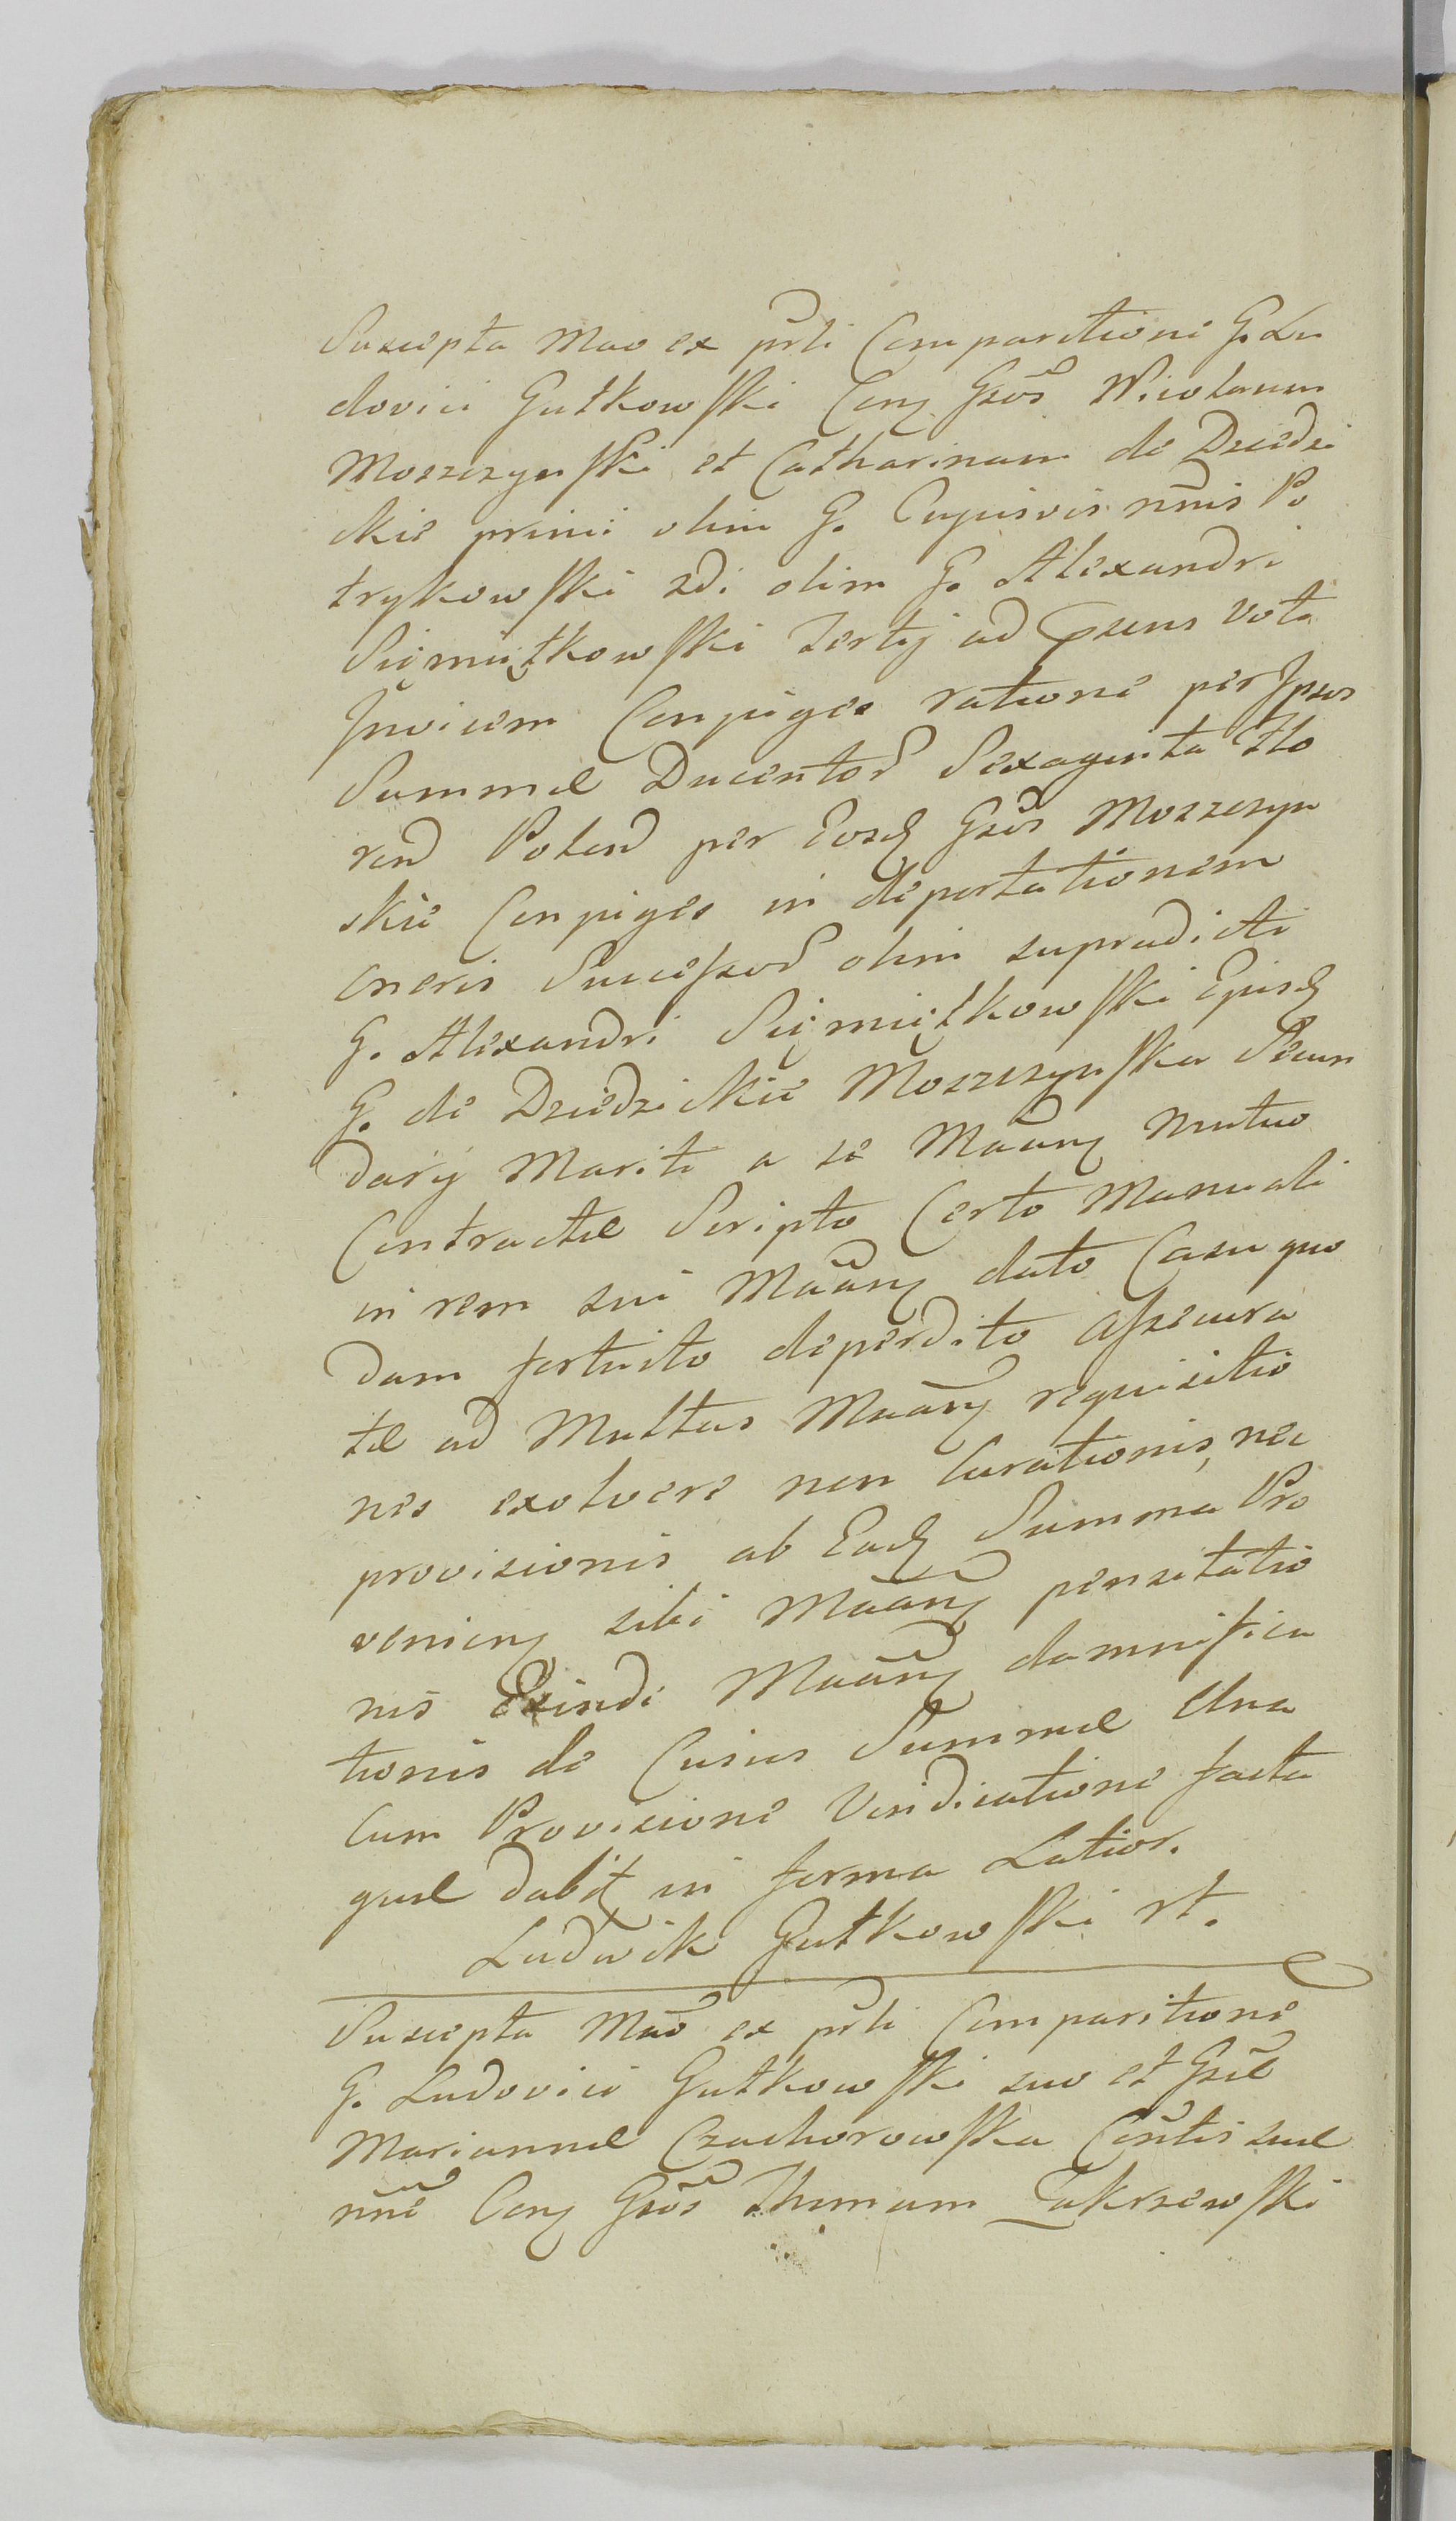 Suscepta Mao ex prli Comparitione G. Lu
dovici Gutkowski Con͠ Gsos Nicolaum
Moszczynski et Catharinam de Dziedzi
ckie primi olim G. Cujusvis nnis Po
trykowski 2di olim G. Alexandri
Sięmiątkowski Tertij ad psens Vota
Invicem Conjuges ratione per Ipsos
Summae Ducentor Sexaginta Flo
ren Polen per Eosd Gsos Moszczyn
skie Conjuges in deportationem
oneris Successor olim supradicti
G. Alexandri Sięmiątkowski Ejusd
G. de Dziedzickie Moszczynska Secun
darij Mariti a se Maan Mutuo
Contractae Scripto Certo Manuali
in rem sui Maan dato Casu quo
dam fortuito deperdito Assecura
tae ad Multas Maan requisitio
nes exolvere non Curationis, nec
provisionis ab Ead Summa Pro
venien sibi Maan pensitatio
nis Exinde Maan damnifica
tionis de Cuius Summae Una
Cum Provisione Vindicatione facta
quae dabit in forma Latior.
Ludwik Gutkowski rt.
Suscepta Mao ex prli Comparitione
G. Ludovici Gutkowski suo et Gsae
Mariannae Czachorowska Contis suae
nne Con Gsos Thomam Zakrzewski